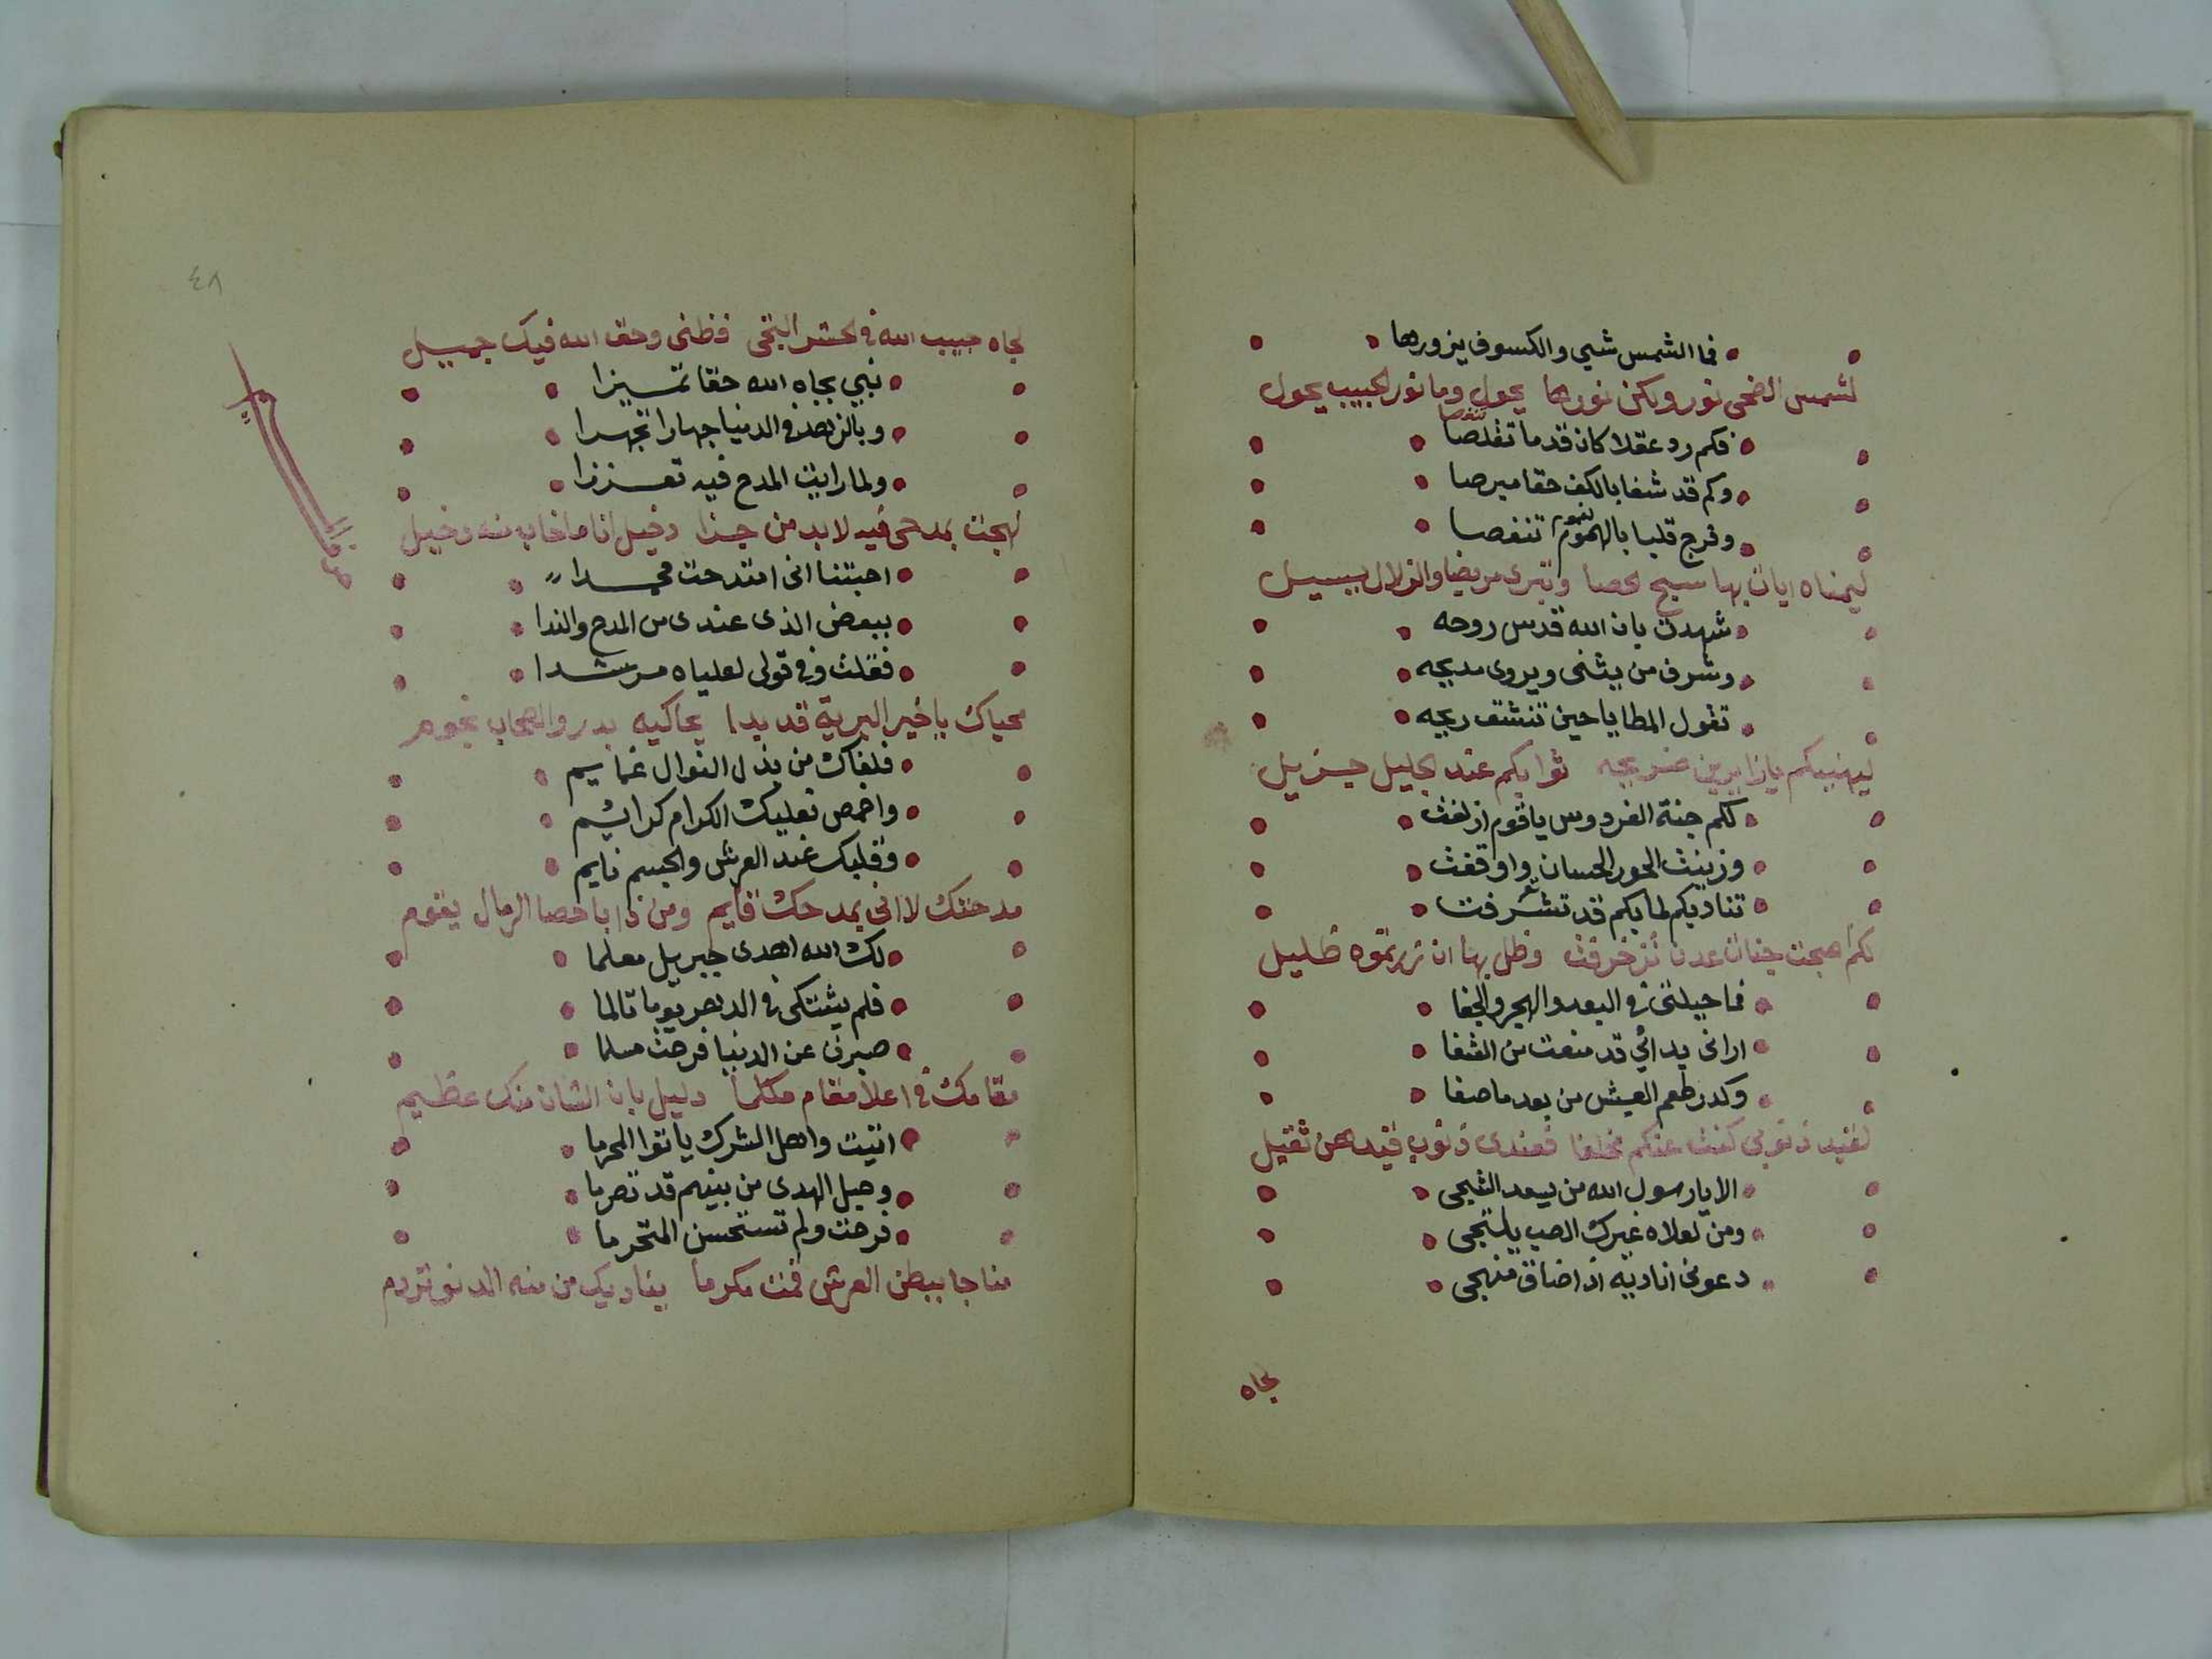 فما الشمس شي والكسوف يزورها
لشمس الضحى نور ولكن نورها يحول وما نور الحبيب يحول
فكم رد عقلا كان قد ما تقلصا
وكم قد شفا بالكف حقا مبرصا
وفرج قلبا بالهموم تنغصا
ليمناه ايات بها سبح الحصا وتبرى مريضا والزلال يسيل
شهدت بان الله قدس روحه
وشرف من يثنى ويروى مديحه
تقول المطايا حين تنشق ريحه
ليهنيكم يا زايرين ضريحه ثوابكم عند الجليل جزيل
لكم جنة الفردوس يا قوم ازلفت
وزينت الحور الحسان واوقفت
تناديكم لما بكم قد تشرفت
لكم اصبحت جنات عدن تزخرفت وظل بها ان زرتموه ظليل
فما حيلتى فى البعد والهجر والجفا
ارانى بدائي قد منعت من الشفا
وكدر طعم العيش من بعد ما صفا
لقيد ذنوبى كنت عنكم مخلفا فعندى ذنوب قيدهن ثقيل
الا يا رسول الله من يسعد الشجى
ومن لعلاه غيرك الصب يلتجى
دعونى اناديه اذا ضاق منهجى
لجاه
٤٨
لجاه حبيب الله فى الحشر التجى فظنى وحق الله فيك جميل
نبي بجاه الله حقا تميزا
وبالزهد فى الدنيا جهارا تجهزا
ولما رايت المدح فيه تعززا
لهجت بمدحى فيه لا بد من جزا دخيل انا ما خاب منه دخيل
احبتنا انى امتدحت محمدا
ببعض الذى عندى من المدح والندا
فقلت وفى قولى لعلياه مرشدا
محياك يا خير البرية قد بدا يحاكيه بدر والصحاب نجوم
فلفاك من بذل النوال غمايم
واخمص نعليك الكرام كرايم
وقلبك عند العرش والجسم نايم
مدحتك لا انى بمدحك قايم ومن ذا باحصا الرمال يقوم
لك الله اهدى جبريل معلما
فلم يشتكى فى الدهر يوما تالما
صبرت عن الدنيا فرحت مسلما
مقامك فى اعلا مقام مكلما دليل بان الشان منك عظيم
اتيت واهل الشرك ياتوا المحرما
وحبل الهدى من بينهم قد تصرما
فرحت ولم تستحسن المتحرما
مناجا ببطن العرش قمت مكرما يناديك من منه الدنو تروم